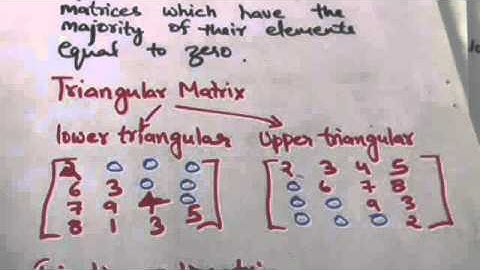 matrices which have the
majority of their elements
equal to zero.
Triangular Matrix
lower triangular Upper triangular
2 0 0 0 2 3 4 5
6 3 0 0 0 6 7 8
7 9 4 0 0 0 9 3
8 1 3 5 0 0 0 2